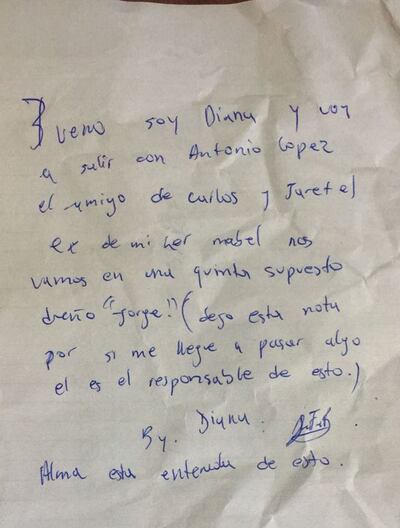 Bueno soy Diana y voy
a salir con Antonio Lopez
el amigo de carlos y Jaret el
ex de mi her mabel nos
vamos en una quinta supuesto
dueño "Jorge!" (dejo esta nota
por si me llegue a pasar algo
el es el responsable de esto.)
By. Diana.
Alma esta enterada de esto.